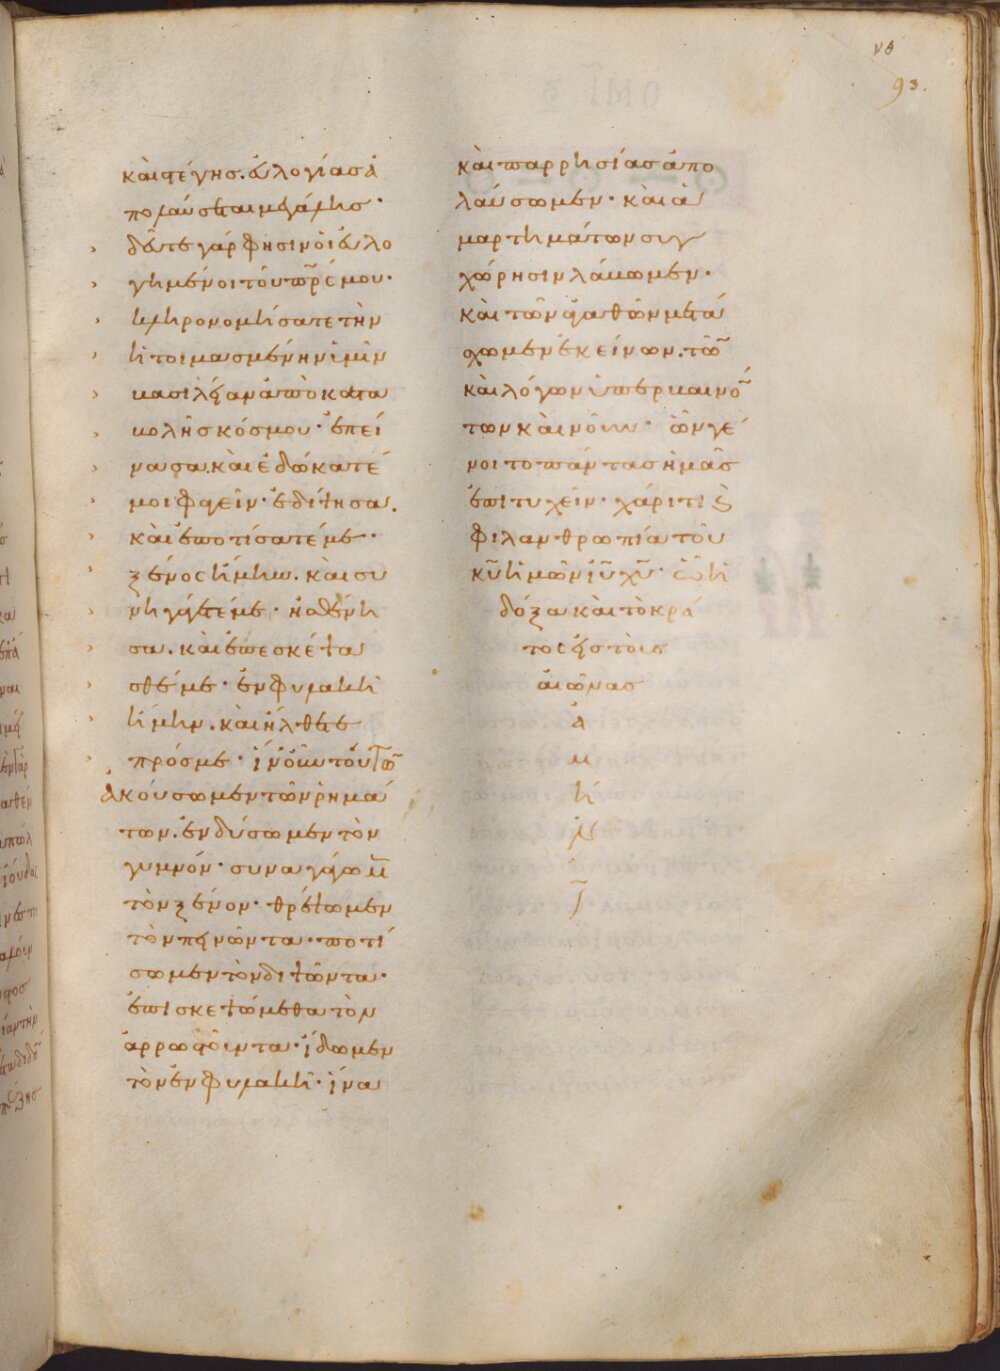 νθ
93.
καὶ φέγγησ. εὐλογίασ ἀ
πολαύσεται μεγάλησ·
δεῦτε γάρ φησιν οἱ εὐλο
γημένοι τοῦ πρ̅ς μου·
κληρονομήσατε τὴν
ἡτοιμασμένην ὑμῖν
βασιλείαν ἀπὸ κατα
βολῆσ κόσμου· ἐπεί
νασα. καὶ ἐδώκατέ
μοι φαγεῖν· ἐδίψησα.
καὶ ἐποτίσατέ με·
ξένος ἤμην. καὶ συ
νηγάγετέ με· ἠσθένη
σα. καὶ ἐπεσκέψα
σθέ με· ἐν φυλακῆ
ἤμην. καὶ ἤλθετε
πρόσ με·
Ἀκούσωμεν τῶν ῥημά
των. ἐνδύσωμεν τὸν
γυμνόν· συναγάγωμ̅
τὸν ξένον· θρέψωμεν
τὸν πεινῶντα· ποτί
σωμεν τὸν διψῶντα·
ἐπισκεψώμεθα τὸν
ἀρρωστοῦντα· ἴδωμεν
τὸν ἐν φυλακῆ· ἵνα
καὶ παρρησίασ ἀπο
λαύσωμεν· καὶ ἁ
μαρτημάτων συγ
χώρησιν λάβωμεν·
καὶ τῶν ἀγαθῶν μετά
σχωμεν ἐκείνων. τῶ̅
καὶ λόγον ὑπερβαινό̅
των καὶ νοῦν· ὧν γέ
νοιτο πάντασ ἡμᾶσ
ἐπιτυχεῖν· χάριτι ϗ
φιλανθρωπία τοῦ
κυ̅ ἡμῶν ιυ̅ χυ̅· ὧ ἡ
δόξα καὶ τὸ κρά
τος εἰς τοὺς
αἰῶνας
ἀ
μ
ὴ
ν